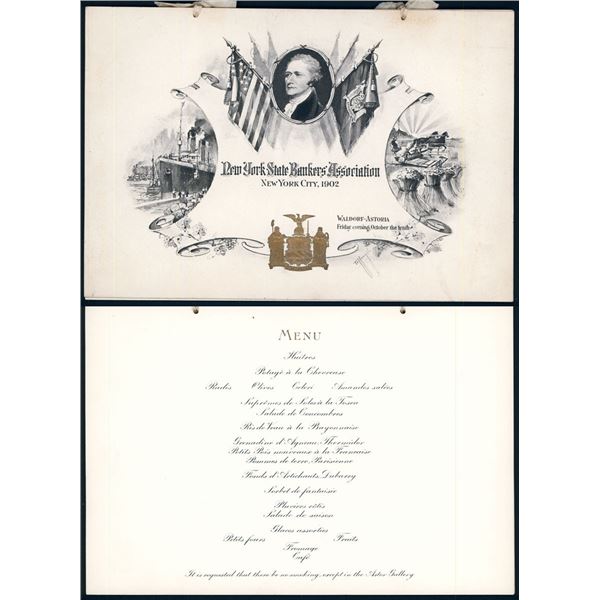 New York State Bankers' Association
New York City, 1902
Waldorf-Astoria
Friday evening, October the tenth
Menu
Huîtres
Potage à la Chevreuse
Radis Olives Celeri Amandes salées
Suprêmes de Soles à la Tosca
Salade de Concombres
Ris de Veau à la Bayonnaise
Grenadine d'Agneau, Thermidor
Petits Pois nouveaux à la Francaise
Pommes de terre, Parisienne
Fonds d'Artichauts, Dubarry
Sorbet de fantaisie
Pluviers rôtis
Salade de saison
Glaces assorties
Petits fours Fruits
Fromage
Café
It is requested that there be no smoking, except in the Astor Gallery